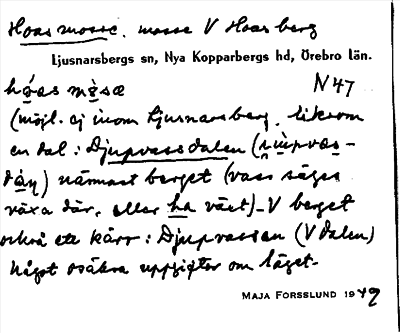 Hoasmosse. mosse V Hoasberg
Ljusnarsbergs sn, Nya Kopparbergs hd, Örebro län.
hǿas mɷ̀sæ N47
(möjl. ej inom Ljusnarsberg. liksom
en dal: Djupvassdalen (
dáɳ) närmast berget (vass säges
växa där, eller ha växt) - V berget
också ett kärr: Djupvassen (V dalen)
Något osäkra uppgifter om läget.
MAJA FORSSLUND 1949